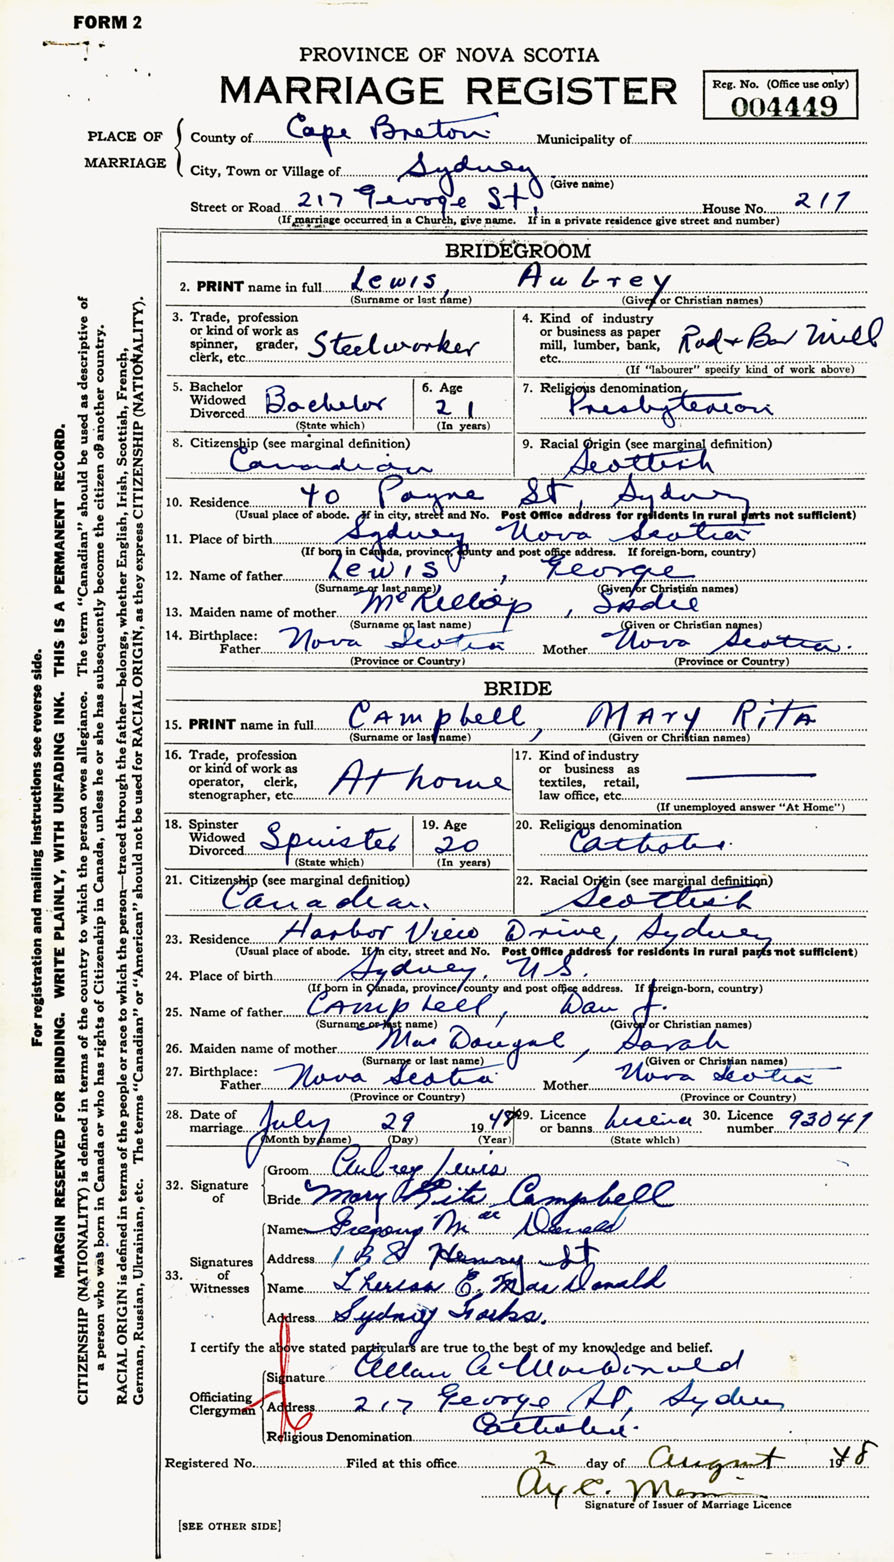 FORM 2
PROVINCE OF NOVA SCOTIA
MARRIAGE REGISTER
Reg. No. (Office use only)
004449
PLACE OF MARRIAGE
County of Cape Breton Municipality of
City, Town or Village of Sydney
(Give name)
Street or Road 217 George St, House No. 217
(If marriage occurred in a Church, give name. If in a private residence give street and number)
BRIDEGROOM
2. PRINT name in full Lewis, Aubrey
(Surname or last name) (Given or Christian names)
3. Trade, profession or kind of work as spinner, grader, clerk, etc. Steelworker
4. Kind of industry or business as paper mill, lumber, bank, etc. Rod & Bar Mill
(If "labourer" specify kind of work above)
5. Bachelor Widowed Divorced Bachelor
(State which)
6. Age 21
(In years)
7. Religious denomination Presbyterian
8. Citizenship (see marginal definition) Canadian
9. Racial Origin (see marginal definition) Scottish
10. Residence 40 Payne St, Sydney
(Usual place of abode. If in city, street and No. Post Office address for residents in rural parts not sufficient)
11. Place of birth Sydney Nova Scotia
(If born in Canada, province, county and post office address. If foreign-born, country)
12. Name of father Lewis, George
(Surname or last name) (Given or Christian names)
13. Maiden name of mother McKillop, Sadie
(Surname or last name) (Given or Christian names)
14. Birthplace: Father Nova Scotia Mother Nova Scotia.
(Province or Country) (Province or Country)
BRIDE
15. PRINT name in full Campbell, Mary Rita
(Surname or last name) (Given or Christian names)
16. Trade, profession or kind of work as operator, clerk, stenographer, etc. At home
17. Kind of industry or business as textiles, retail, law office, etc.
(If unemployed answer "At Home")
18. Spinster Widowed Divorced Spinster
(State which)
19. Age 20
(In years)
20. Religious denomination Catholic.
21. Citizenship (see marginal definition) Canadian.
22. Racial Origin (see marginal definition) Scottish
23. Residence Harbor View Drive, Sydney
(Usual place of abode. If in city, street and No. Post Office address for residents in rural parts not sufficient)
24. Place of birth Sydney. N.S.
(If born in Canada, province/county and post office address. If foreign-born, country)
25. Name of father Campbell, Dan J.
(Surname or last name) (Given or Christian names)
26. Maiden name of mother MacDougal, Sarah
(Surname or last name) (Given or Christian names)
27. Birthplace: Father Nova Scotia Mother Nova Scotia
(Province or Country) (Province or Country)
28. Date of marriage July 29 1948
(Month by name) (Day) (Year)
29. Licence or banns License
(State which)
30. Licence number 93041
32. Signature of
Groom Aubrey Lewis
Bride Mary Rita Campbell
33. Signatures of Witnesses
Name Gregory MacDonald
Address Henry St
Name Theresa E. MacDonald
Address Sydney Forks.
I certify the above stated particulars are true to the best of my knowledge and belief.
Officiating Clergyman
Signature Allan A MacDonald
Address 217 George St, Sydney
Religious Denomination Catholic.
Registered No. Filed at this office 2 day of August 1948
Signature of Issuer of Marriage Licence
[SEE OTHER SIDE]
For registration and mailing instructions see reverse side.
MARGIN RESERVED FOR BINDING. WRITE PLAINLY, WITH UNFADING INK. THIS IS A PERMANENT RECORD.
CITIZENSHIP (NATIONALITY) is defined in terms of the country to which the person owes allegiance. The term "Canadian" should be used as descriptive of
a person who was born in Canada or who has rights of Citizenship in Canada, unless he or she has subsequently become the citizen of another country.
RACIAL ORIGIN is defined in terms of the people or race to which the person—traced through the father—belongs, whether English, Irish, Scottish, French,
German, Russian, Ukrainian, etc. The terms "Canadian" or "American" should not be used for RACIAL ORIGIN, as they express CITIZENSHIP (NATIONALITY).